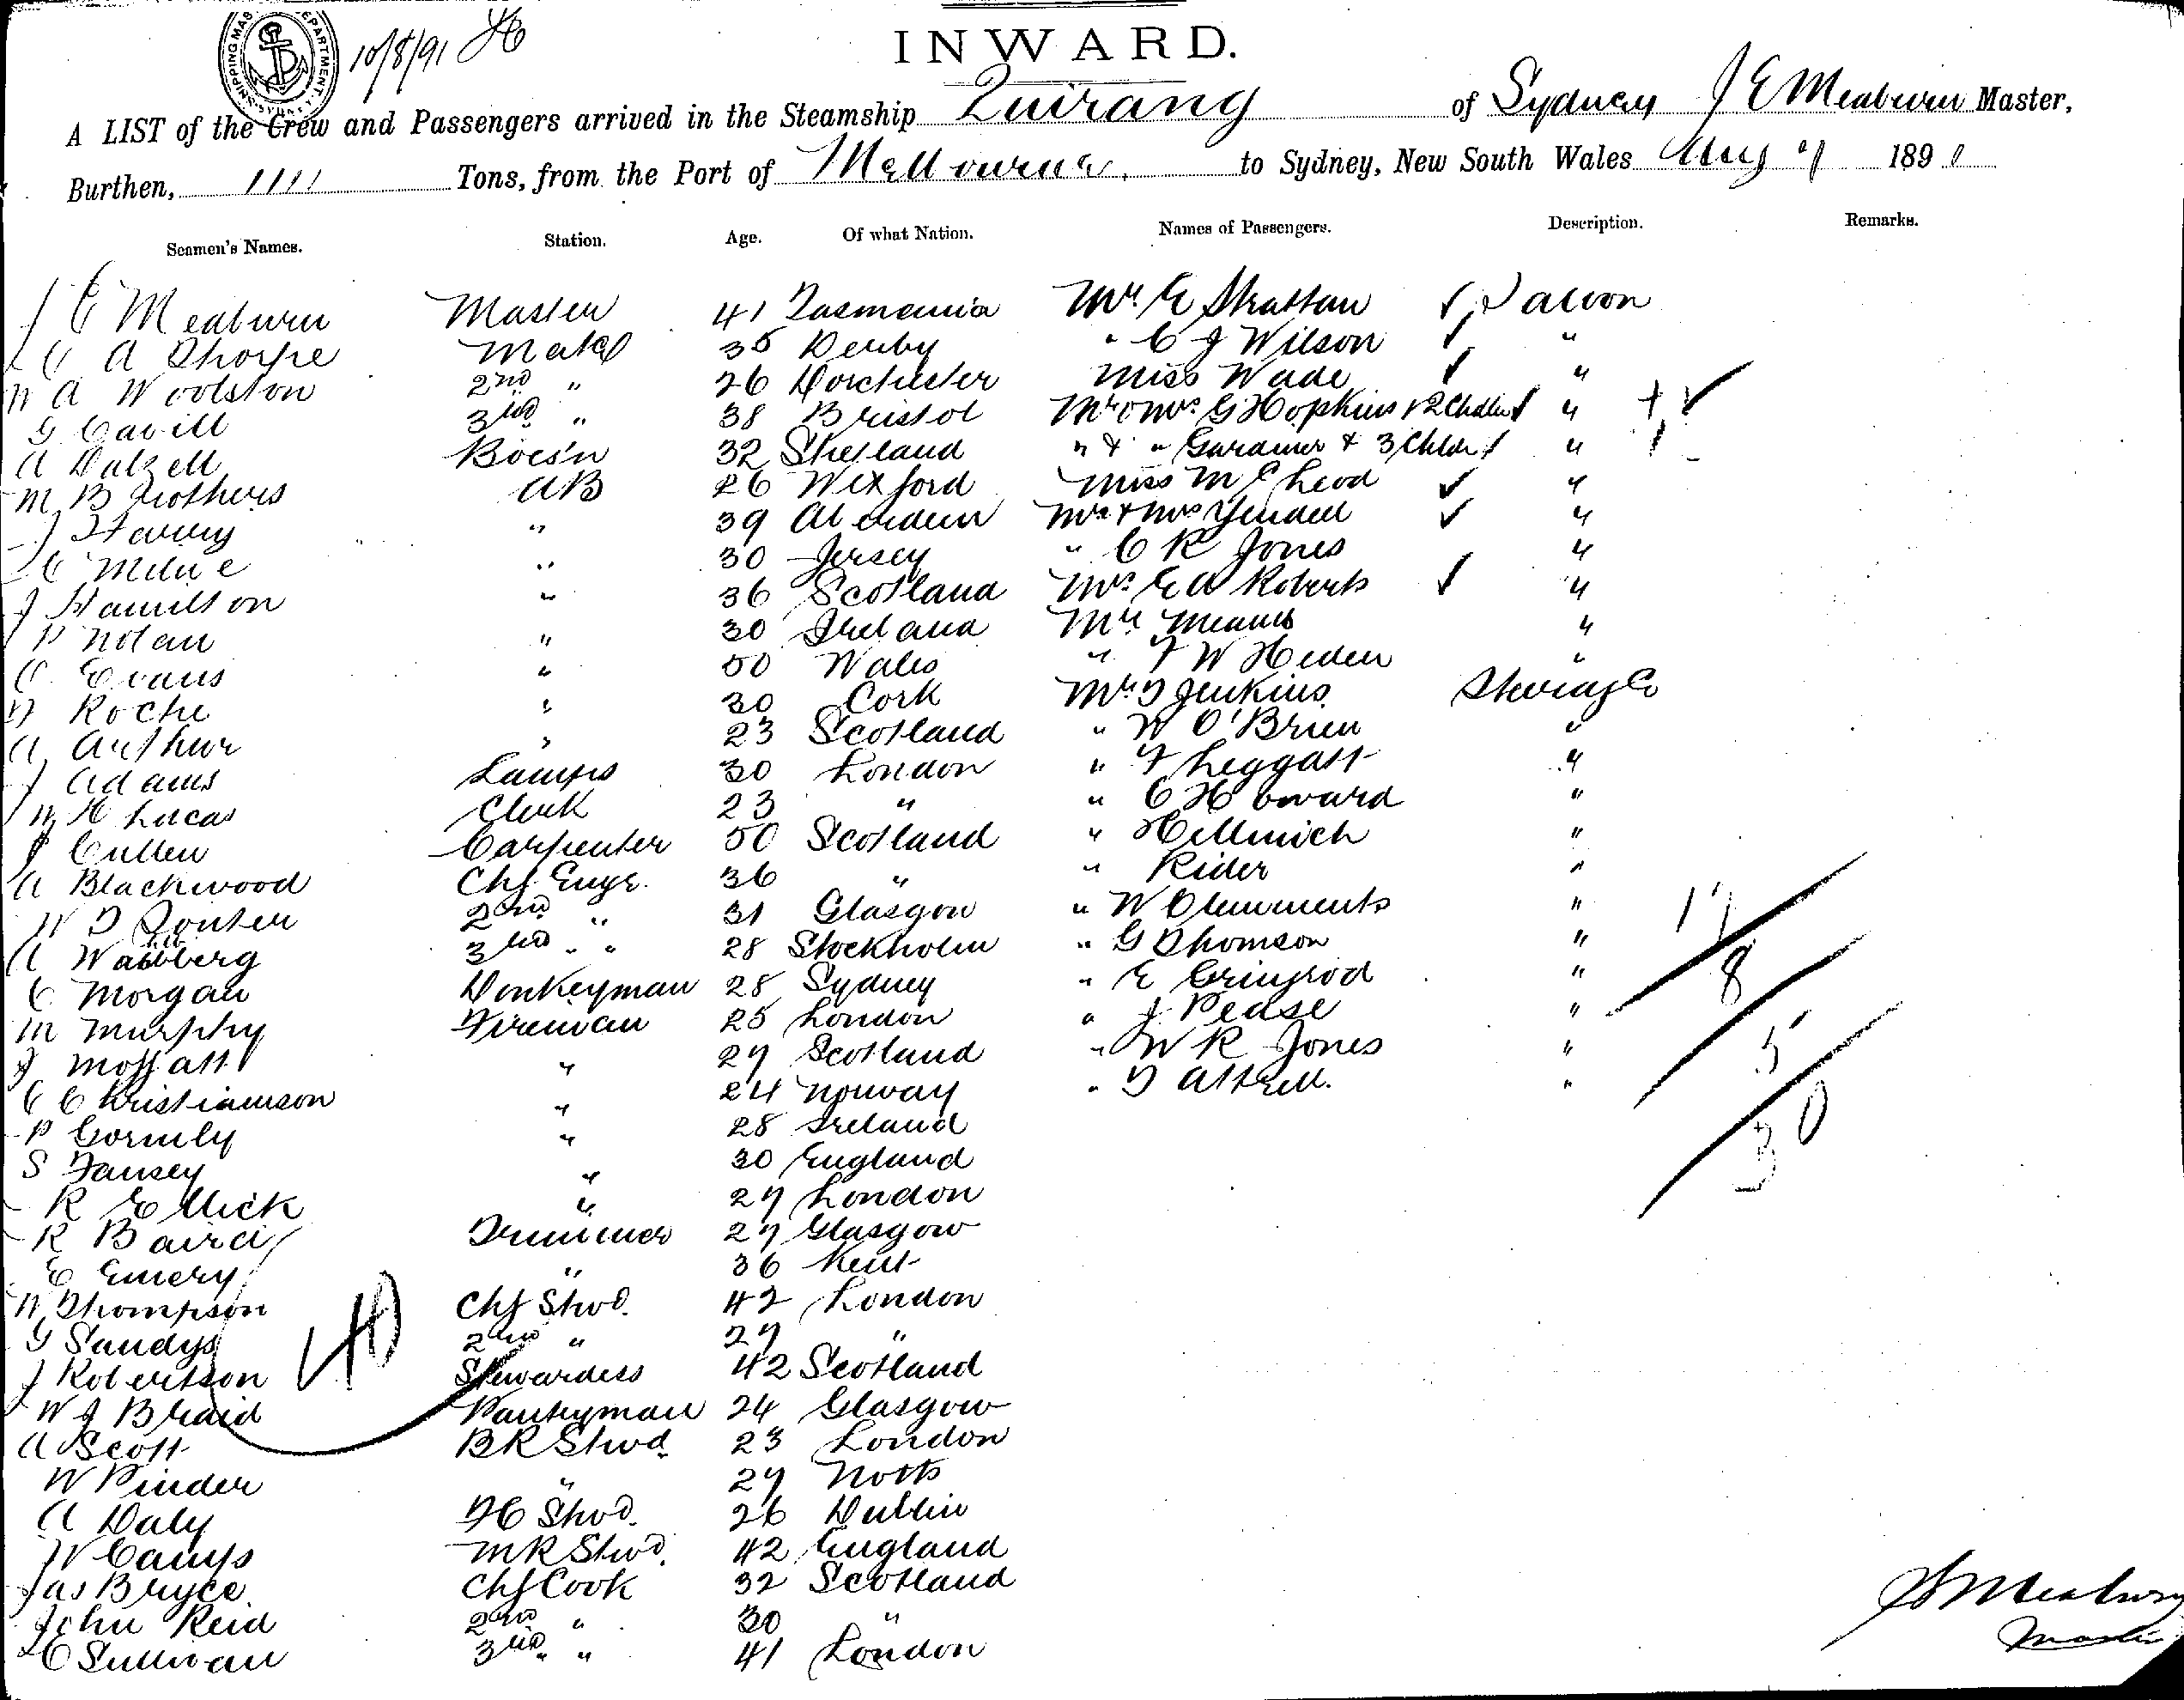 SHIPPING MAS DEPARTMENT.
10/8/91
INWARD.
A LIST of the Crew and Passengers arrived in the Steamship Quirang of Sydney J E Meaburn Master,
Burthen, 1111 Tons, from the Port of Melbourne. to Sydney, New South Wales Aug 9 1891
Seamen's Names. Station. Age. Of what Nation. Names of Passengers. Description. Remarks.
J E Meaburn Master 41 Tasmania Mr. E Strattan Saloon
A Thorpe Mate 35 Derby " C J Wilson "
W A Woolston 2nd " 26 Dorchester Miss Wade "
G Cavill 3rd " 38 Bristol Mr & Mrs G Hopkins & 2 Chdn "
A Dalzell Bocs'n 32 Shetland " & " Gardiner & 3 Chldn "
M Brothers AB 26 Wexford Miss McLeod "
J Harvey " 39 Aberdeen Mr & Mrs Yendell "
C Milne " 30 Jersey " C R Jones "
J Hamilton " 36 Scotland Mrs. E A Roberts "
P Nolan " 30 Ireland Mr Meares "
C. Evans " 50 Wales " F W Heden "
D Roche " 30 Cork Mr. T Jenkins Steerage
A Arthur " 23 Scotland " W O'Brien "
J Adams Lamps 30 London " F Leggatt "
W H Lucas Clerk 23 " " C Howard "
J Cullen Carpenter 50 Scotland " Hellmich "
A Blackwood Chf Engr. 36 " " Rider "
W D Souter 2nd " 31 Glasgow " W Clemments " 17
A Wallberg 3rd " " 28 Stockholm " G Thomson " 8
C. Morgan Donkeyman 28 Sydney " E Gringrod "
M Murphy Fireman 25 London " J Pease " 5
J Moffatt " 27 Scotland " W R Jones "
C Christiamson " 24 Norway " T Attrell. " 30
P Gormly " 28 Ireland
S Fansey " 30 England
R Ellick " 27 London
R Baird Trimmer 27 Glasgow
E Emery " 36 Kent
W Thompson Chf Stwd. 42 London
G Sandys 2nd " 27 "
J Robertson Stewardess 42 Scotland
W J Braid Pantryman 24 Glasgow
A Scott BR Stwd. 23 London
W Pinder " 27 Notts
A Daly FC Stwd. 26 Dublin
W Camps MR Stwd. 42 England
Jas Bryce Chf Cook 32 Scotland
John Reid 2nd " 30 "
C Sullivan 3rd " " 41 London
J E Meaburn
Master